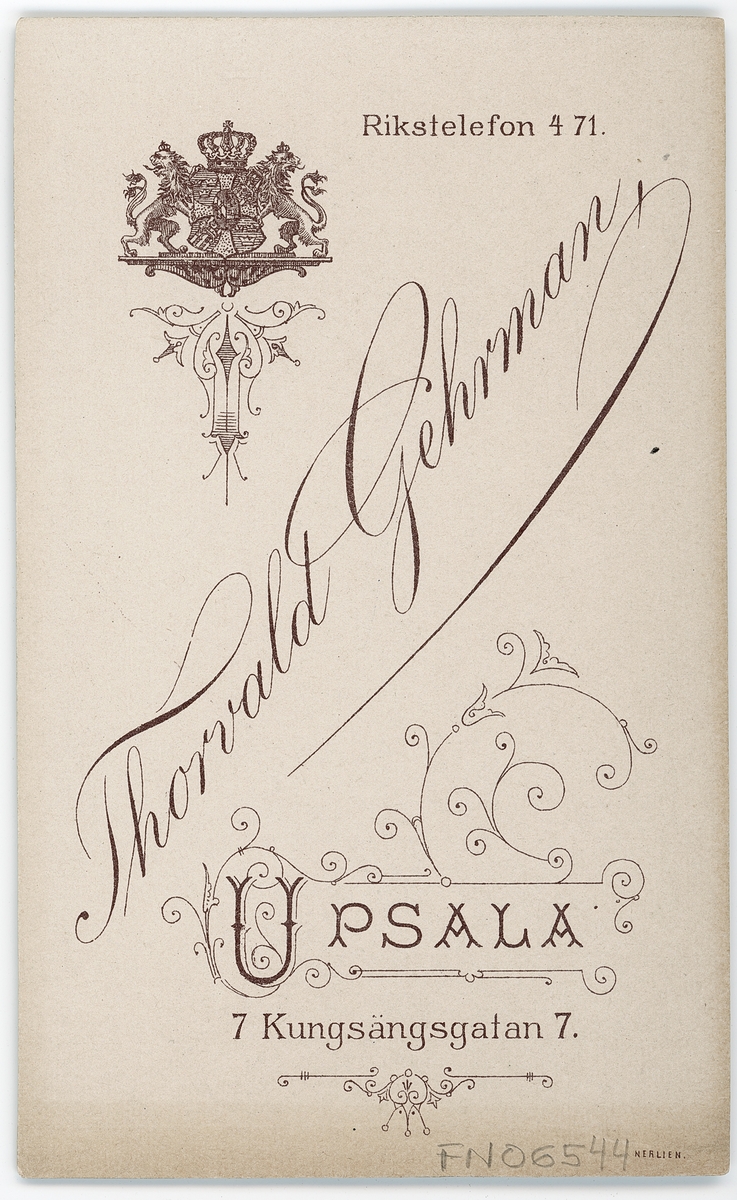 Rikstelefon 4 71.
Thorvald Gehrman,
UPSALA
7 Kungsängsgatan 7.
FN06544
NERLIEN.